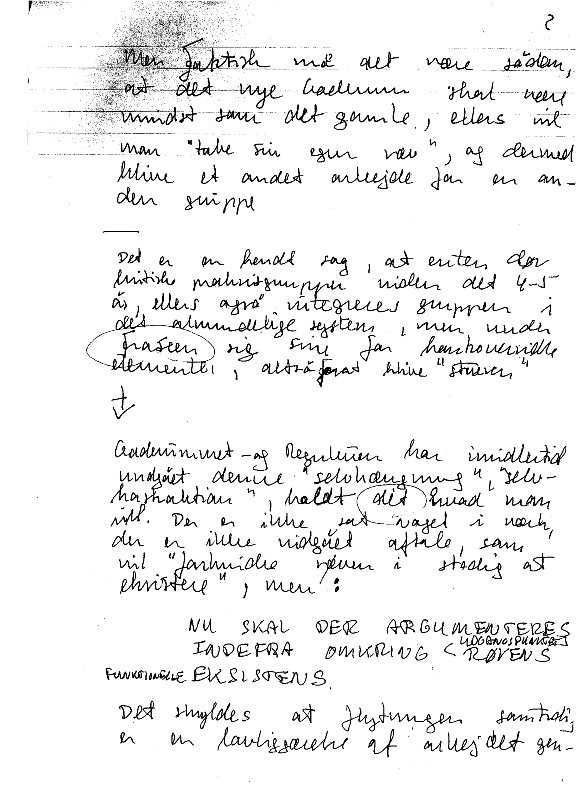 2
Men faktisk må det være sådan,
at det nye Gaderum skal være
mindst som det gamle, ellers vil
man "tabe sin egen ræv", og dermed
blive et andet arbejde for en an-
den gruppe
Det er en kendt sag, at enten dør
kritiske praksisgrupper inden det 4-5
år, ellers også integreres gruppen i
det almindelige system, men under
sig sine for
elementer, altså for at blive "stueren"
Gaderummet - og Regulus'en har imidlertid
undgået denne "selvhængning", "selv-
kastration", kaldt det hvad man
vil. Der er ikke sat noget i værk,
der er ikke indgået aftale, som
vil "forhindre ræven i stadig at
eksistere", men:
NU SKAL DER ARGUMENTERES
UDGANGSPUNKTET
INDEFRA OMKRING < RØVENS
FUNKTIONELLE EKSISTENS.
Det skyldes at flytningen samtidig
er en lovliggørelse af arbejdet gen-